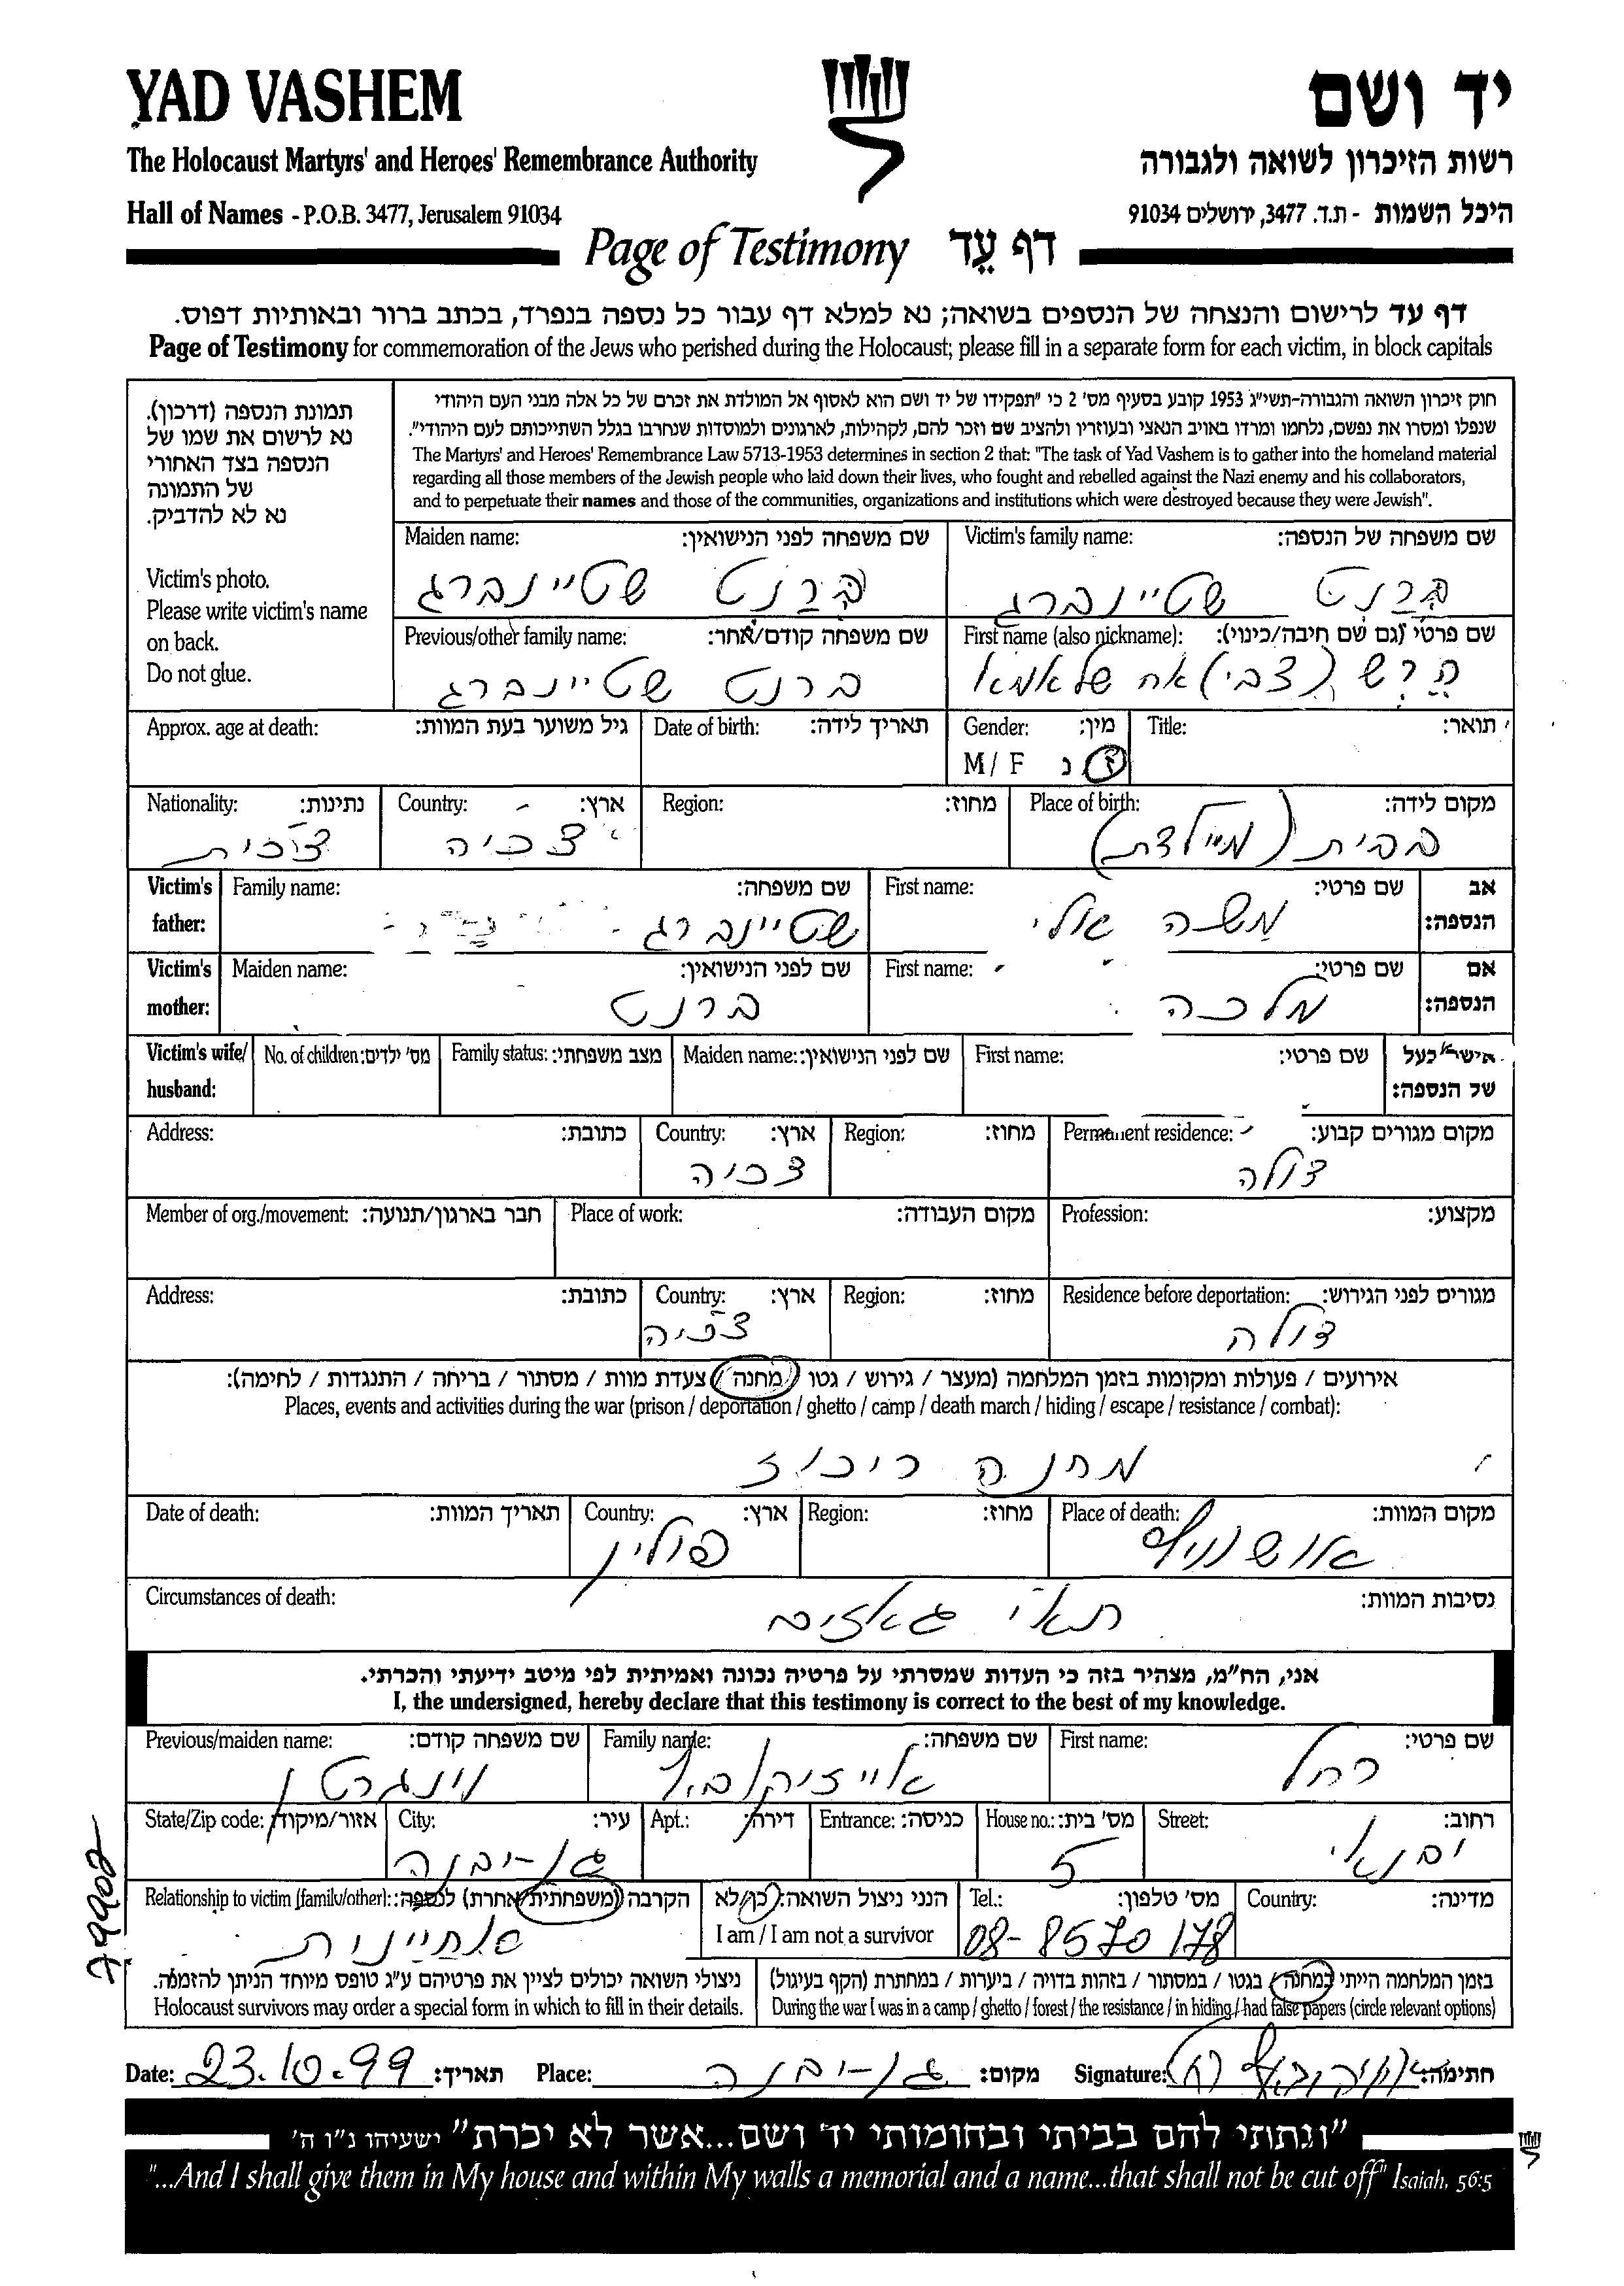 YAD VASHEM
יד ושם
The Holocaust Martyrs' and Heroes' Remembrance Authority
רשות הזיכרון לשואה ולגבורה
Hall of Names - P.O.B. 3477, Jerusalem 91034
היכל השמות - ת.ד. 3477, ירושלים 91034
Page of Testimony דף עֵד
דף עד לרישום והנצחה של הנספים בשואה; נא למלא דף עבור כל נספה בנפרד, בכתב ברור ובאותיות דפוס.
Page of Testimony for commemoration of the Jews who perished during the Holocaust; please fill in a separate form for each victim, in block capitals
תמונת הנספה (דרכון).
נא לרשום את שמו של
הנספה בצד האחורי
של התמונה
נא לא להדביק.
Victim's photo.
Please write victim's name
on back.
Do not glue.
חוק זיכרון השואה והגבורה-תשי"ג 1953 קובע בסעיף מס' 2 כי "תפקידו של יד ושם הוא לאסוף אל המולדת את זכרם של כל אלה מבני העם היהודי
שנפלו ומסרו את נפשם, נלחמו ומרדו באויב הנאצי ובעוזריו ולהציב שם וזכר להם, לקהילות, לארגונים ולמוסדות שנחרבו בגלל השתייכותם לעם היהודי".
The Martyrs' and Heroes' Remembrance Law 5713-1953 determines in section 2 that: "The task of Yad Vashem is to gather into the homeland material
regarding all those members of the Jewish people who laid down their lives, who fought and rebelled against the Nazi enemy and his collaborators,
and to perpetuate their names and those of the communities, organizations and institutions which were destroyed because they were Jewish".
Victim's family name: שם משפחה של הנספה:
ברנט שטיינברג
Maiden name: שם משפחה לפני הנישואין:
ברנט שטיינברג
First name (also nickname): שם פרטי (גם שם חיבה/כינוי):
הרש (צבי) אח של אמא
Previous/other family name: שם משפחה קודם/אחר:
ברנט שטיינברג
Title: תואר:
Gender: מין:
M / F ז נ
Date of birth: תאריך לידה:
Approx. age at death: גיל משוער בעת המוות:
Place of birth: מקום לידה:
בבית (מיילדת)
Region: מחוז:
Country: ארץ:
צכיה
Nationality: נתינות:
צ'כית
Victim's father: אב הנספה:
First name: שם פרטי:
משה אלי
Family name: שם משפחה:
שטיינברג
Victim's mother: אם הנספה:
First name: שם פרטי:
מלכה
Maiden name: שם לפני הנישואין:
ברנט
Victim's wife/ husband: אישה/בעל של הנספה:
First name: שם פרטי:
Maiden name: שם לפני הנישואין:
Family status: מצב משפחתי:
No. of children: מס' ילדים:
Permanent residence: מקום מגורים קבוע:
דולה
Region: מחוז:
Country: ארץ:
צכיה
Address: כתובת:
Profession: מקצוע:
Place of work: מקום העבודה:
Member of org./movement: חבר בארגון/תנועה:
Residence before deportation: מגורים לפני הגירוש:
דולה
Region: מחוז:
Country: ארץ:
צכיה
Address: כתובת:
אירועים / פעולות ומקומות בזמן המלחמה (מעצר / גירוש / גטו / מחנה / צעדת מוות / מסתור / בריחה / התנגדות / לחימה):
Places, events and activities during the war (prison / deportation / ghetto / camp / death march / hiding / escape / resistance / combat):
מחנה ריכוז
Place of death: מקום המוות:
אושוויץ
Region: מחוז:
Country: ארץ:
פולין
Date of death: תאריך המוות:
Circumstances of death: נסיבות המוות:
תאי גאזים
אני, הח"מ, מצהיר בזה כי העדות שמסרתי על פרטיה נכונה ואמיתית לפי מיטב ידיעתי והכרתי.
I, the undersigned, hereby declare that this testimony is correct to the best of my knowledge.
First name: שם פרטי:
רחל
Family name: שם משפחה:
אייזיקוביץ
Previous/maiden name: שם משפחה קודם:
וינגרטן
Street: רחוב:
יבנאלי
House no.: מס' בית:
5
Entrance: כניסה:
Apt.: דירה:
City: עיר:
גן-יבנה
State/Zip code: אזור/מיקוד:
Country: מדינה:
Tel.: מס' טלפון:
08-8570178
הנני ניצול השואה: כן/לא
I am / I am not a survivor
Relationship to victim (family/other): הקרבה (משפחתית/אחרת) לנספה:
אחיינית
בזמן המלחמה הייתי במחנה / בגטו / במסתור / בזהות בדויה / ביערות / במחתרת (הקף בעיגול)
During the war I was in a camp / ghetto / forest / the resistance / in hiding / had false papers (circle relevant options)
ניצולי השואה יכולים לציין את פרטיהם ע"ג טופס מיוחד הניתן להזמנה.
Holocaust survivors may order a special form in which to fill in their details.
Date: 23.10.99 תאריך:
Place: גן-יבנה מקום:
Signature: חתימה:
"ונתתי להם בביתי ובחומותי יד ושם...אשר לא יכרת" ישעיהו נ"ו ה'
"...And I shall give them in My house and within My walls a memorial and a name...that shall not be cut off" Isaiah, 56:5